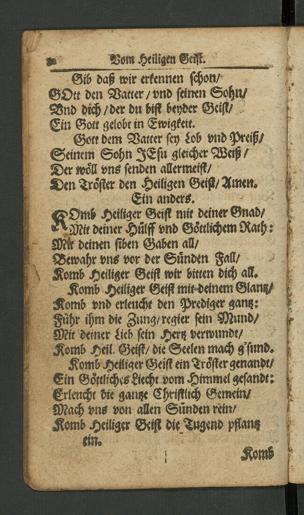 Vom Heiligen Geist.
Gib daß wir erkennen schon/
GOtt den Vatter/ vnd seinen Sohn/
Vnd dich/ der du bist beyder Geist/
Ein Gott gelobt in Ewigkeit.
Gott dem Vatter sey Lob vnd Preiß/
Seinem Sohn JEsu gleicher Weiß/
Der wöll vns senden allermeist/
Den Tröster den Heiligen Geist/ Amen.
Ein anders.
KOmb Heiliger Geist mit deiner Gnad/
Mit deiner Hülff vnd Göttlichem Rath:
Mit deinen siben Gaben all/
Bewahr vns vor der Sünden Fall/
Komb Heiliger Geist wir bitten dich all.
Komb Heiliger Geist mit deinem Glantz/
Komb vnd erleucht den Prediger gantz:
Führ ihm die Zung/ regier sein Mund/
Mit deiner Lieb sein Hertz verwundt/
Komb Heil. Geist/ die Seelen mach g'sund.
Komb Heiliger Geist ein Tröster genandt/
Ein Göttliches Liecht vom Himmel gesandt:
Erleucht die gantze Christlich Gemein/
Mach vns von allen Sünden rein/
Komb Heiliger Geist die Tugend pflantz
ein.
Komb